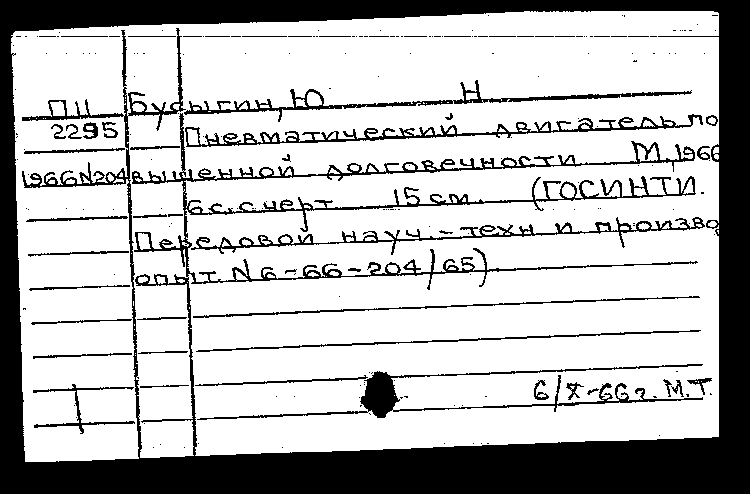 П11 Бусыгин, Ю Н
2295 Пневматический двигатель по
1966N204 вышенной долговечности М., 1966
6 с. с черт 15 см. (ГОСИНТИ.
Передовой науч.-техн и произво
опыт. N 6-66-204/65).
6/X-66 г. М.Т.